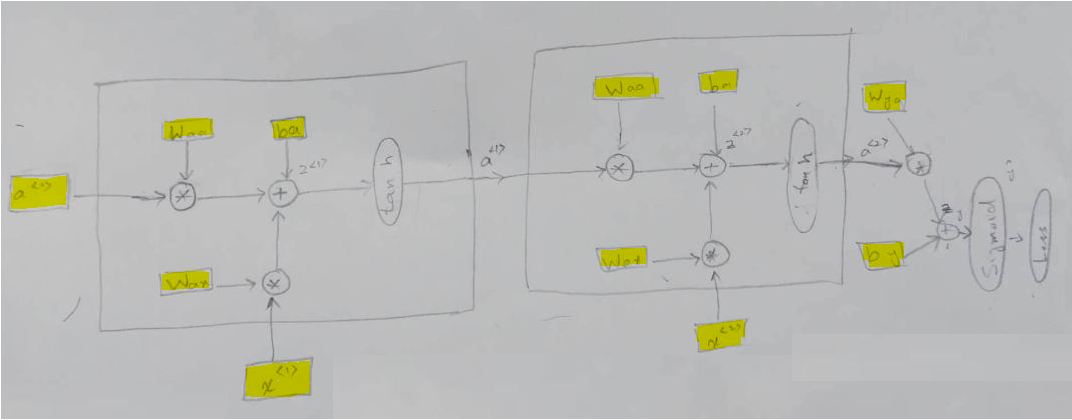 Waa
ba
z<1>
a<1>
tanh
Wax
x<1>
a<1>
Waa
ba
z<2>
tanh
Wax
x<2>
a<2>
Wya
by
Sigmoid
Loss